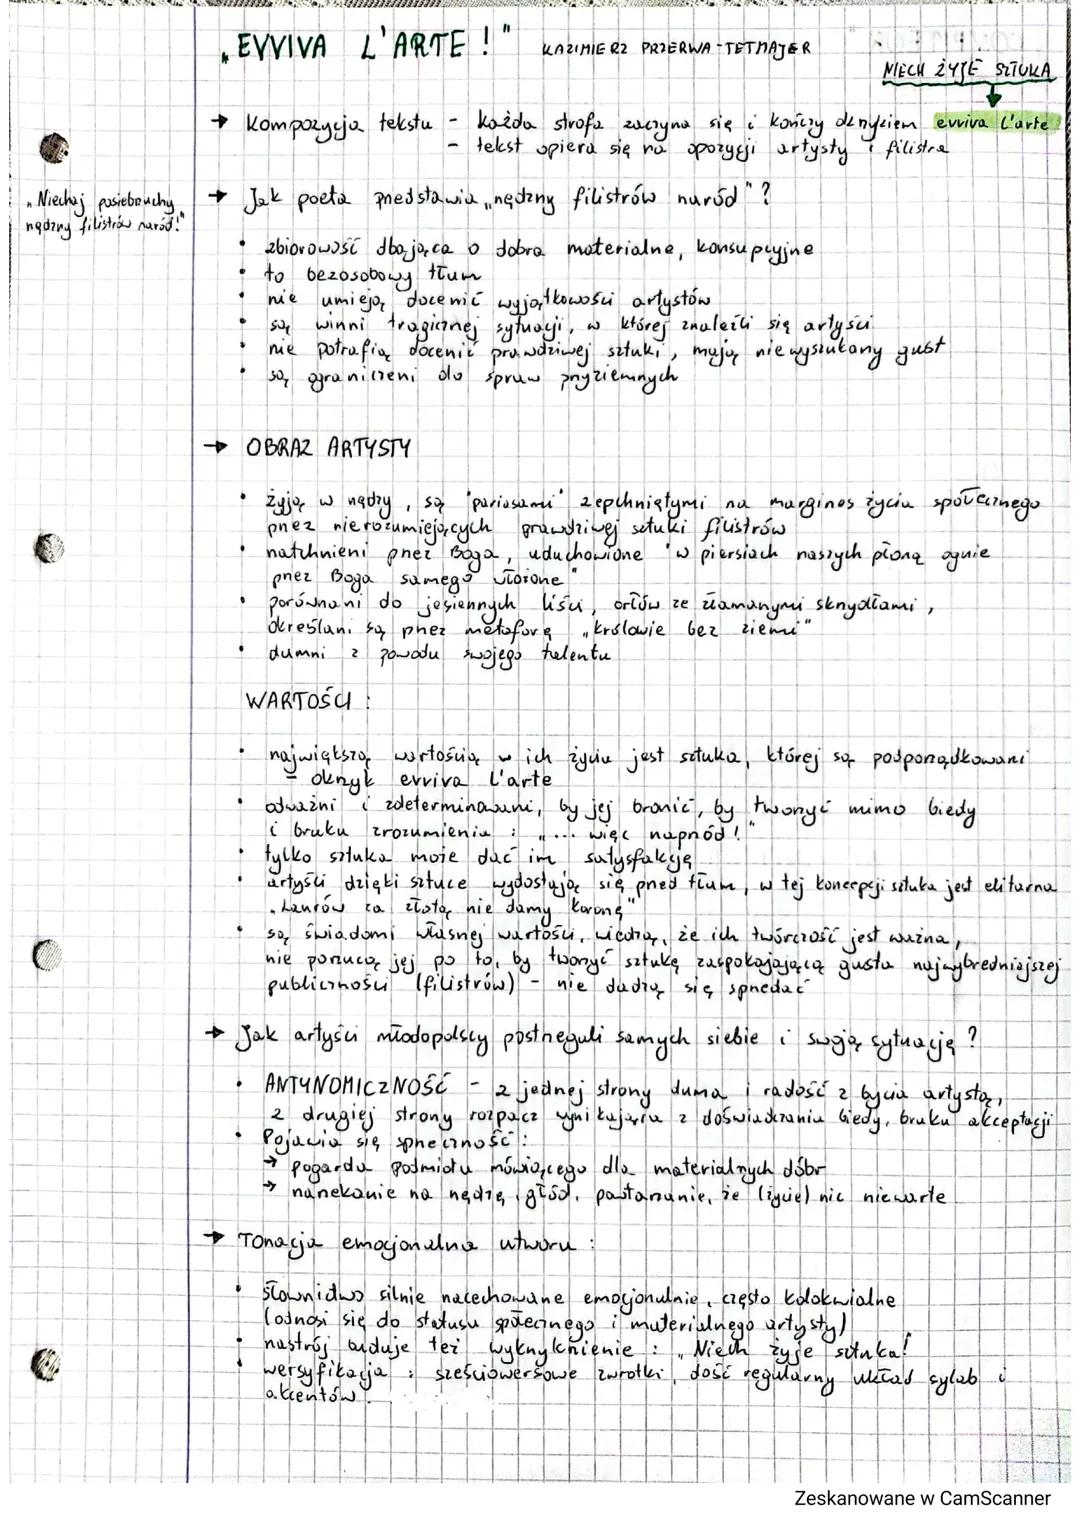 „EVVIVA L'ARTE!" KAZIMIERZ PRZERWA-TETMAJER
NIECH ŻYJE SZTUKA
→ Kompozycja tekstu - każda strofa zaczyna się i kończy okrzykiem evviva l'arte
- tekst opiera się na opozycji artysty i filistra
„Niechaj pasiebrzuchy
nędzny filistrów naród!"
→ Jak poeta przedstawia „nędzny filistrów naród"?
• zbiorowość dbająca o dobra materialne, konsupcyjne
• to bezosobowy tłum
• nie umieją docenić wyjątkowości artystów
• są winni tragicznej sytuacji, w której znaleźli się artyści
• nie potrafią docenić prawdziwej sztuki, mają niewyszukany gust
• są ograniczeni do spraw przyziemnych
→ OBRAZ ARTYSTY
• żyją w nędzy, są 'pariasami' zepchniętymi na margines życia społecznego
przez nierozumiejących prawdziwej sztuki filistrów
• natchnieni przez Boga, uduchowione 'w piersiach naszych płoną ognie
przez Boga samego włożone"
• porównani do jesiennych liści, orłów ze złamanymi skrzydłami,
określani są przez metaforę „królowie bez ziemi"
• dumni z powodu swojego talentu
WARTOŚCI:
• największą wartością w ich życiu jest sztuka, której są podporządkowani
- okrzyk evviva l'arte
• odważni i zdeterminowani, by jej bronić, by tworzyć mimo biedy
i braku zrozumienia: „... więc naprzód!"
• tylko sztuka może dać im satysfakcję
• artyści dzięki sztuce wydostają się przed tłum, w tej koncepcji sztuka jest elitarna
„Laurów za złotą nie damy koronę"
• są świadomi własnej wartości, wiedzą, że ich twórczość jest ważna,
nie porzucą jej po to, by tworzyć sztukę zaspokajającą gusta najwybredniejszej
publiczności (filistrów) - nie dadzą się sprzedać
→ Jak artyści młodopolscy postrzegali samych siebie i swoją sytuację?
• ANTYNOMICZNOŚĆ - z jednej strony duma i radość z bycia artystą,
z drugiej strony rozpacz wynikająca z doświadczania biedy, braku akceptacji
• Pojawia się sprzeczność:
→ pogarda podmiotu mówiącego dla materialnych dóbr
→ narzekanie na nędzę, głód, powtarzanie, że (życie) nic niewarte
→ Tonacja emocjonalna utworu:
• słownictwo silnie nacechowane emocjonalnie, często kolokwialne
(odnosi się do statusu społecznego i materialnego artysty)
• nastrój buduje też wykrzyknienie: „Niech żyje sztuka!
• wersyfikacja: sześciowersowe zwrotki, dość regularny układ sylab i
akcentów.
Zeskanowane w CamScanner